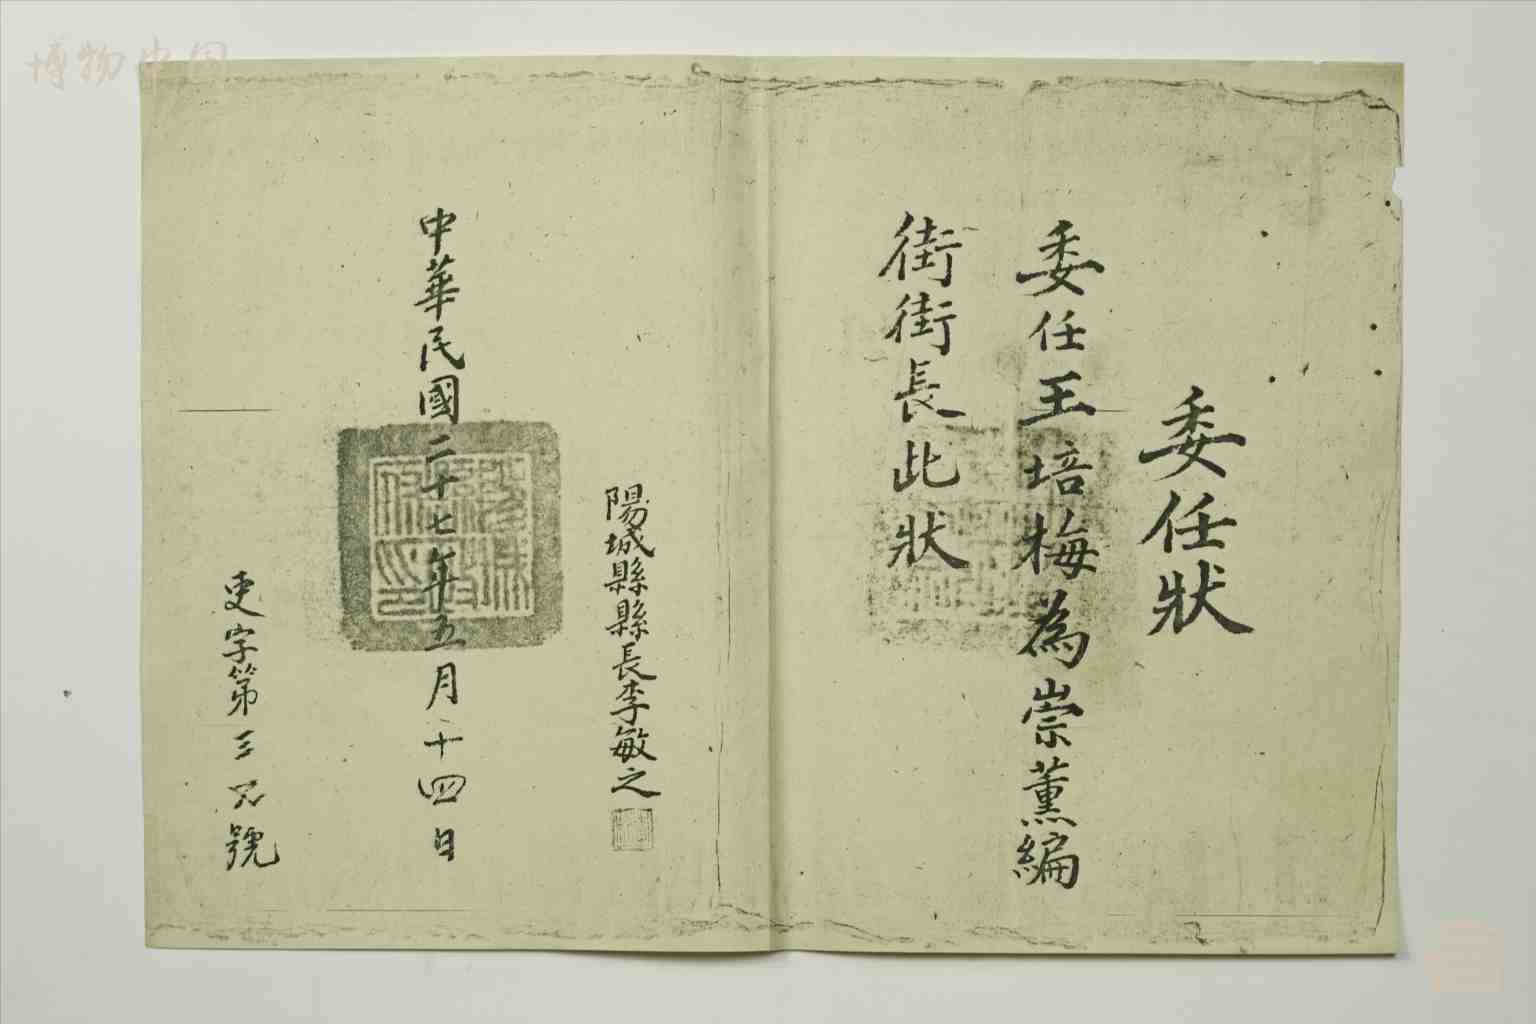 委任狀
委任王培梅為崇薰編
街街長此狀
陽城縣縣長李敏之
中華民國二十七年五月十四日
吏字第三 號
博物中国